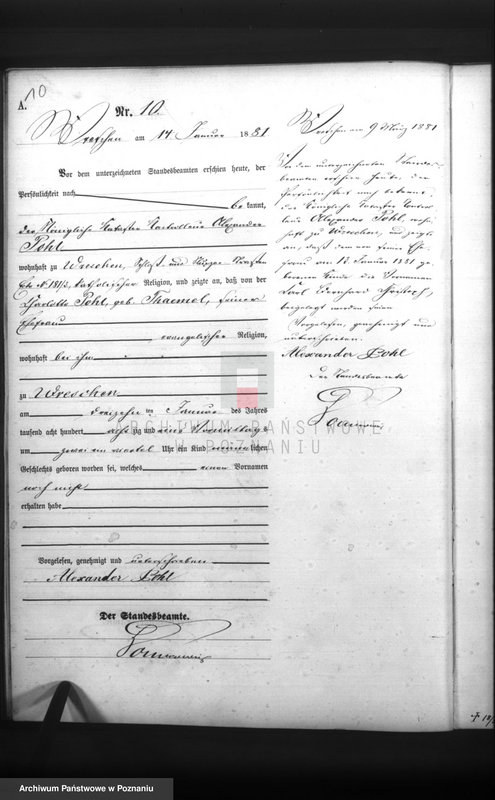 10
A.
Nr. 10.
Wreschen am 14 Januar 1881
Vor dem unterzeichneten Standesbeamten erschien heute, der
Persönlichkeit nach
be kannt,
der Königliche Kataster Kontrolleur Alexander
Pohl
wohnhaft zu Wreschen, Schloß und
katholischer Religion, und zeigte an, daß von der
Charlotte Pohl, geb. Thaemel, seiner
Ehefrau
evangelischer Religion,
wohnhaft bei ihm
zu Wreschen
am dreizehn ten Januar des Jahres
tausend acht hundert achtzig und eins Vormittags
um zwei ein viertel Uhr ein Kind männlichen
Geschlechts geboren worden sei, welches einen Vornamen
noch nicht
erhalten habe
Vorgelesen, genehmigt und unterschrieben
Alexander Pohl
Der Standesbeamte.
Wreschen am 9 März 1881
Vor dem unterzeichneten Standes-
beamten erschien heute, der
Persönlichkeit nach bekannt,
der Königliche Kataster Kontrol-
leur Alexander Pohl, wohn-
haft zu Wreschen, und zeigte
an, daß dem von seiner Ehe-
frau am 13 Januar 1881 ge-
borenen Kinde die Vornamen
Karl Bernhard
beigelegt worden seien
Vorgelesen, genehmigt und
unterschrieben
Alexander Pohl
Der Standesbeamte
ARCHIWUM PAŃSTWOWE
W POZNANIU
Archiwum Państwowe w Poznaniu